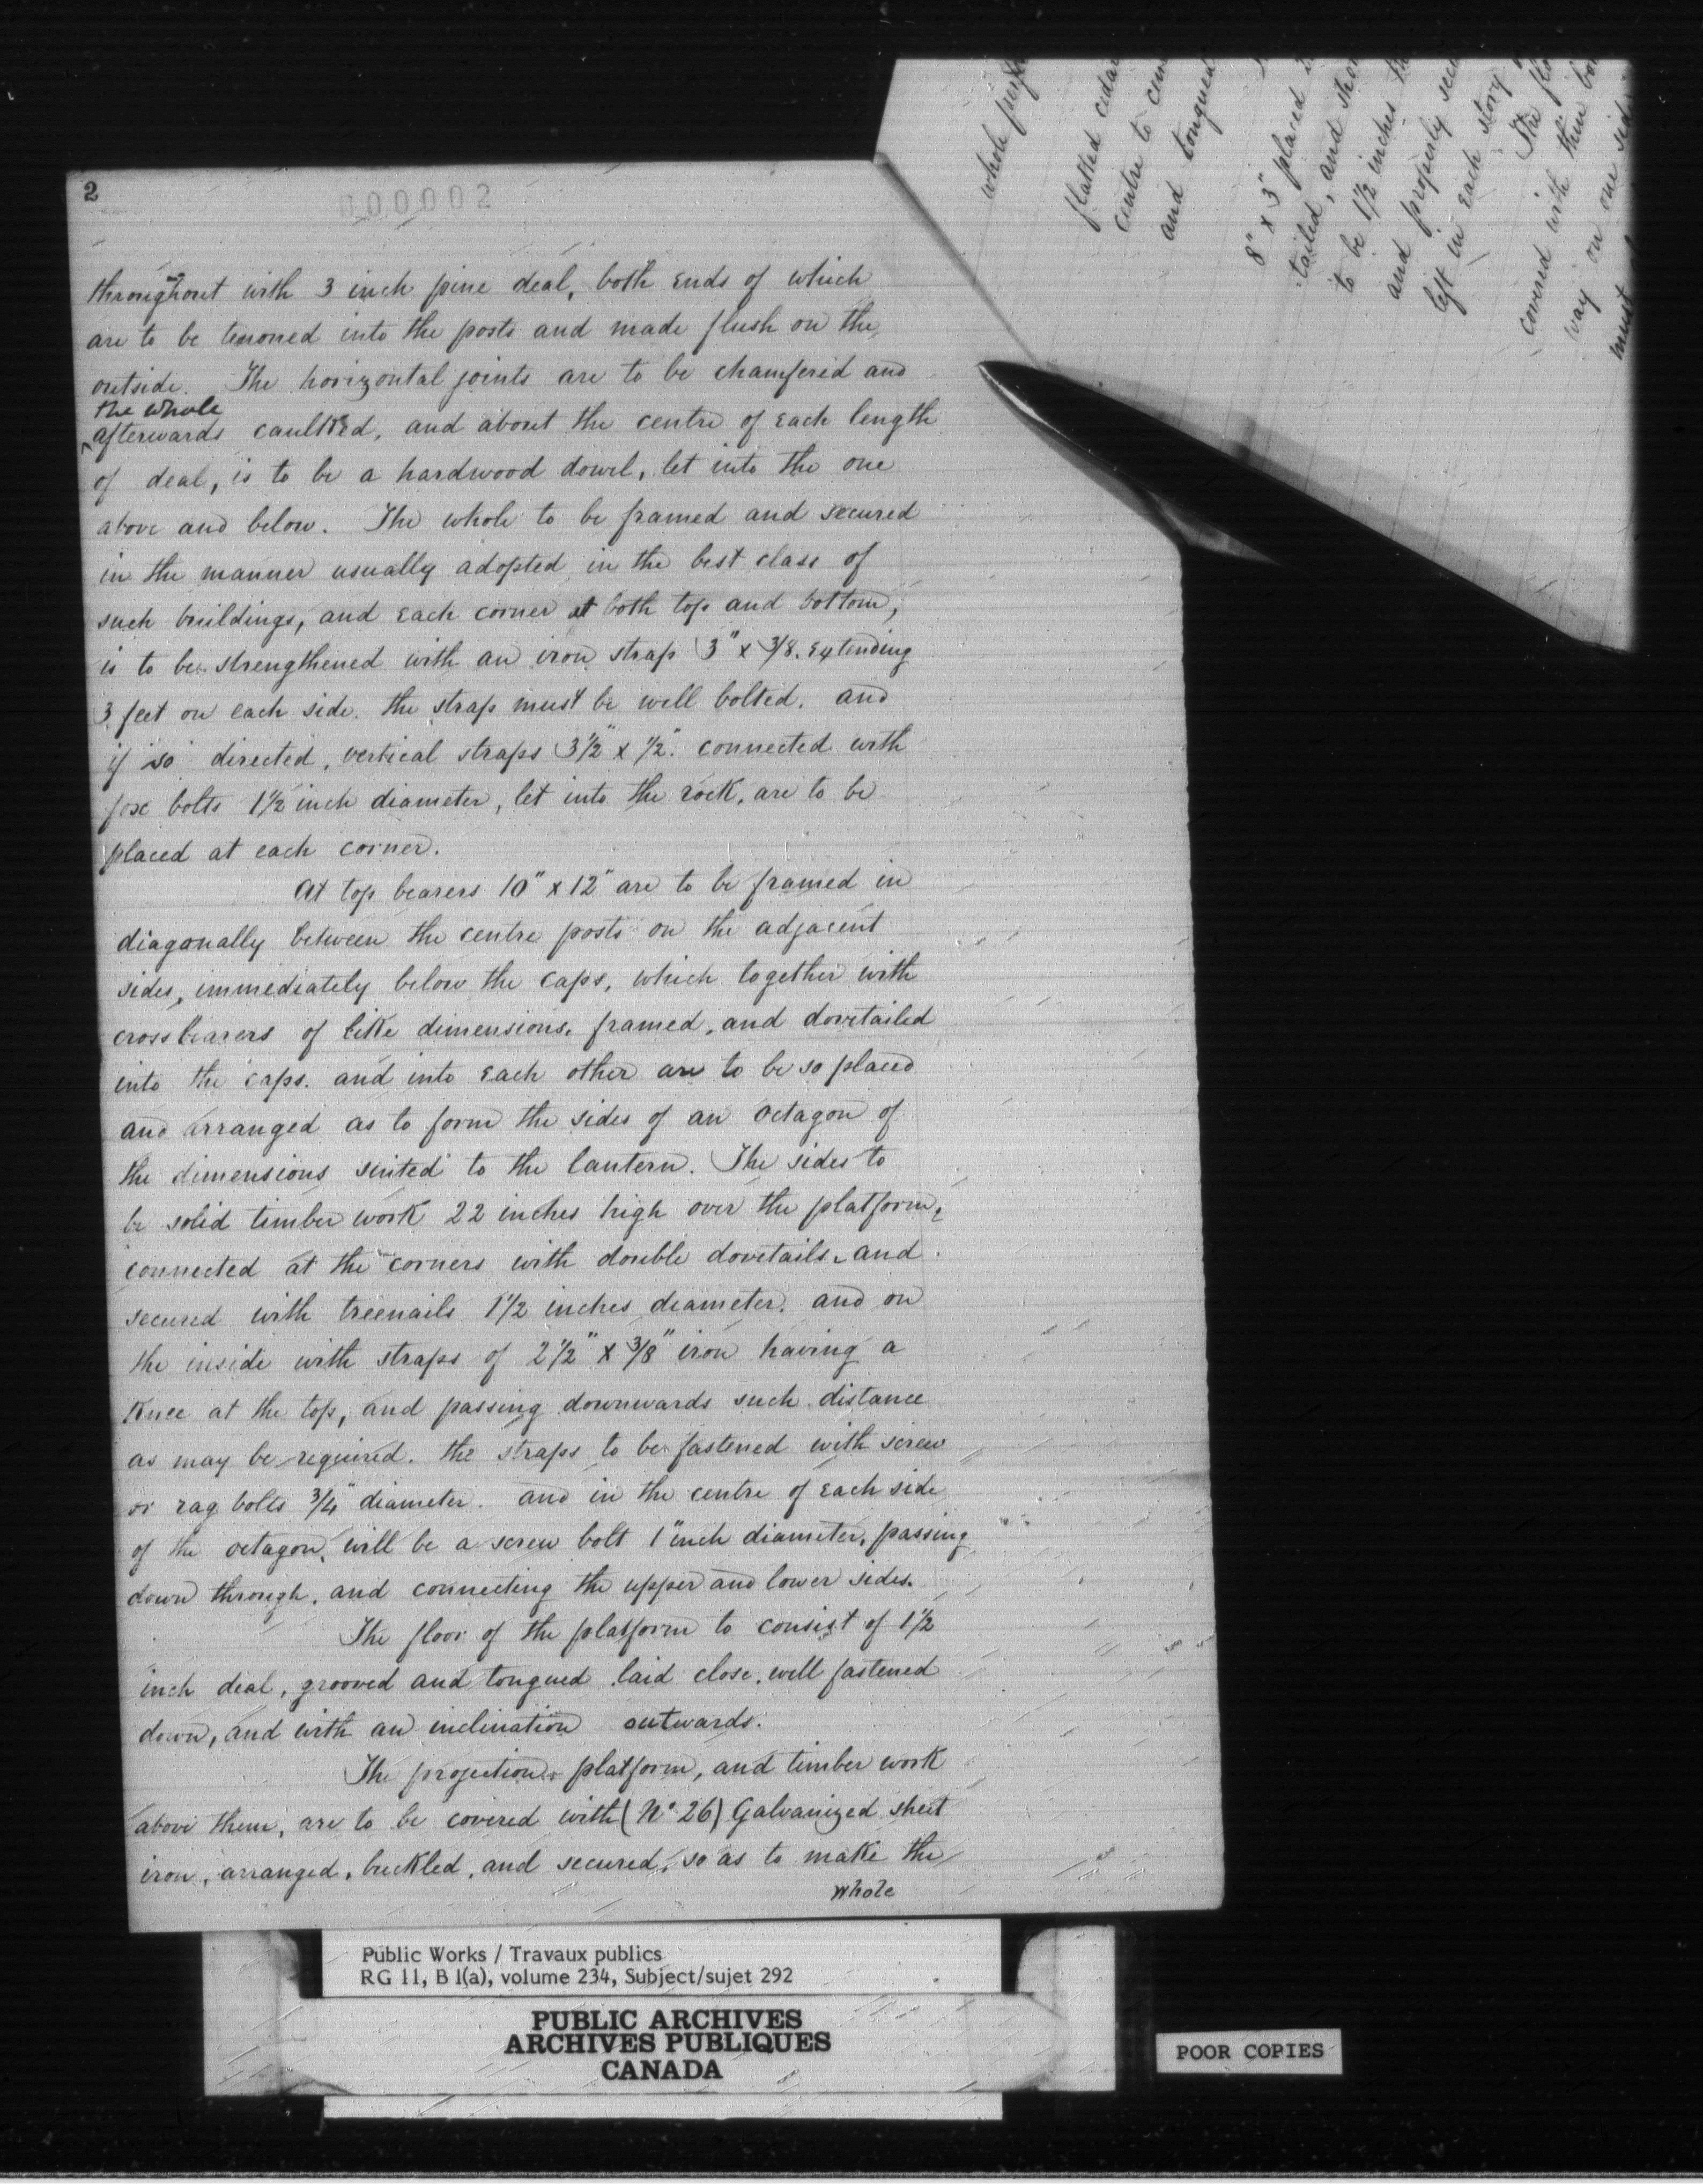 2
000002
throughout with 3 inch pine deal, both ends of which
are to be tenoned into the posts and made flush on the
outside. The horizontal joints are to be chamfered and
the whole
afterwards caulked, and about the centre of each length
of deal, is to be a hardwood dowel, let into the one
above and below. The whole to be framed and secured
in the manner usually adopted in the best class of
such buildings, and each corner at both top and bottom,
is to be strengthened with an iron strap 3" x 3/8. extending
3 feet on each side. the strap must be well bolted. and
if so directed, vertical straps 3½" x ½". connected with
fox bolts 1½ inch diameter, let into the rock, are to be
placed at each corner.
At top bearers 10" x 12" are to be framed in
diagonally between the centre posts on the adjacent
sides, immediately below the caps, which together with
cross bearers of like dimensions, framed, and dovetailed
into the caps. and into each other are to be so placed
and arranged as to form the sides of an octagon of
the dimensions suited to the lantern. The sides to
be solid timber work 22 inches high over the platform,
connected at the corners with double dovetails, and
secured with treenails 1½ inches diameter. and on
the inside with straps of 2½" x 3/8" iron having a
Knee at the top, and passing downwards such distance
as may be required. the straps to be fastened with screw
or rag bolts ¾" diameter. and in the centre of each side
of the octagon, will be a screw bolt 1" inch diameter, passing
down through, and connecting the upper and lower sides.
The floor of the platform to consist of 1½
inch deal, grooved and tongued laid close, well fastened
down, and with an inclination outwards.
The projection platform, and timber work
above them, are to be covered with (No 26) Galvanized sheet
iron, arranged, buckled, and secured, so as to make the
whole
whole
flatted cedar
centre to
and tongued
8" x 3" placed
tailed, and
to be 1½ inches
and properly
left in each story
The
covered with them
way on one side
must
Public Works / Travaux publics
RG 11, B 1(a), volume 234, Subject/sujet 292
PUBLIC ARCHIVES
ARCHIVES PUBLIQUES
CANADA
POOR COPIES